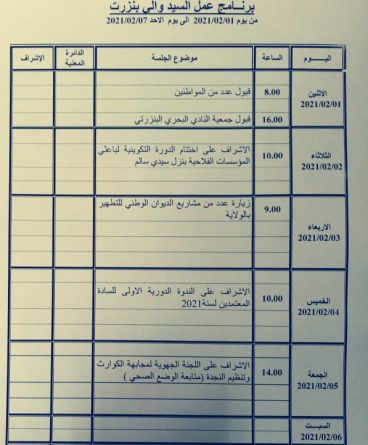 برنـامج عمل السيد والي بنزرت
من يوم 2021/02/01 الى يوم الاحد 2021/02/07
اليـــوم الساعة موضوع الجلسة الدائرة المعنية الاشراف
الاثنين
2021/02/01
8.00 قبول عدد من المواطنين
16.00 قبول جمعية النادي البحري البنزرتي
الثلاثاء
2021/02/02
10.00 الاشراف على اختتام الدورة التكوينية لباعثي
المؤسسات الفلاحية بنزل سيدي سالم
الاربعاء
2021/02/03
9.00 زيارة عدد من مشاريع الديوان الوطني للتطهير
بالولاية
الخميس
2021/02/04
10.00 الاشراف على الندوة الدورية الاولى للسادة
المعتمدين لسنة2021
الجمعة
2021/02/05
14.00 الاشراف على اللجنة الجهوية لمجابهة الكوارث
وتنظيم النجدة (متابعة الوضع الصحي )
السبـــت
2021/02/06